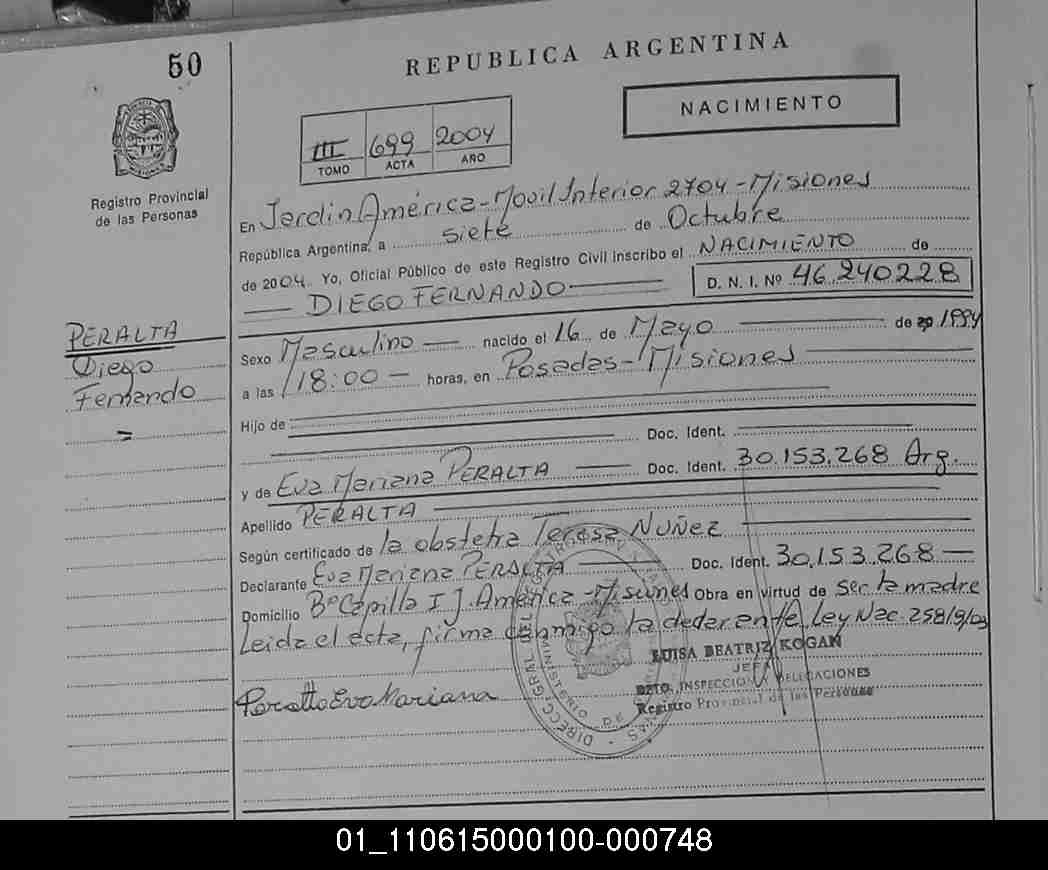 50
REPUBLICA ARGENTINA
NACIMIENTO
III 699 2004
TOMO ACTA AÑO
Registro Provincial
de las Personas
En Jardin América - Movil Interior 2704 - Misiones
República Argentina, a siete de Octubre
de 2004 Yo, Oficial Público de este Registro Civil inscribo el NACIMIENTO de
DIEGO FERNANDO D. N. I. Nº 46.240228
PERALTA
Diego
Fernando
Sexo Masculino nacido el 16 de Mayo de 1994
a las 18:00 horas, en Posadas - Misiones
Hijo de
Doc. Ident.
y de Eva Mariana PERALTA Doc. Ident. 30.153.268 Arg.
Apellido PERALTA
Según certificado de la obstetra Teresa NUÑEZ
Declarante Eva Mariana PERALTA Doc. Ident. 30.153.268
Domicilio Bº Capilla I J. América - Misiones Obra en virtud de Ser la madre
Leida el acta, firma conmigo la declarante, Ley Nac. 25819/03
LUISA BEATRIZ KOGAN
JEFA
DPTO. INSPECCION Y DELEGACIONES
Registro Provincial de las Personas
Peralta Eva Mariana
DIRECC. GRAL. DEL
MINISTERIO DE
01_110615000100-000748